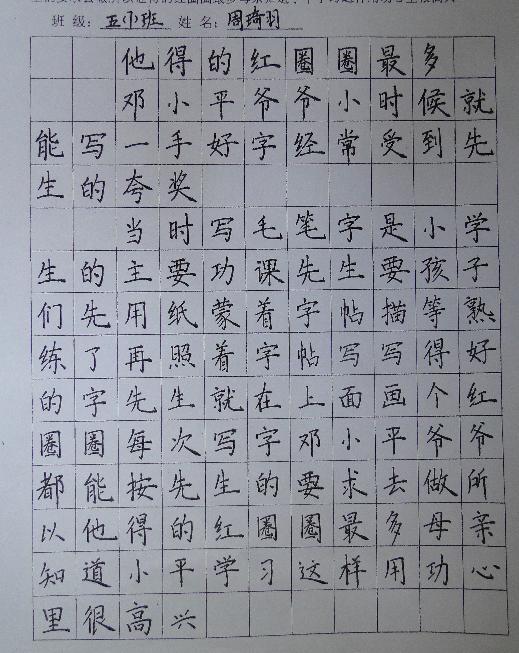 班级：五（1）班 姓名：周琦羽
他得的红圈圈最多
邓小平爷爷小时候就
能写一手好字经常受到先
生的夸奖
当时写毛笔字是小学
生的主要功课先生要孩子
们先用纸蒙着字帖描等熟
练了再照着字帖写写得好
的字先生就在上面画个红
圈圈每次写字邓小平爷爷
都能按先生的要求去做所
以他得的红圈圈最多母亲
知道小平学习这样用功心
里很高兴